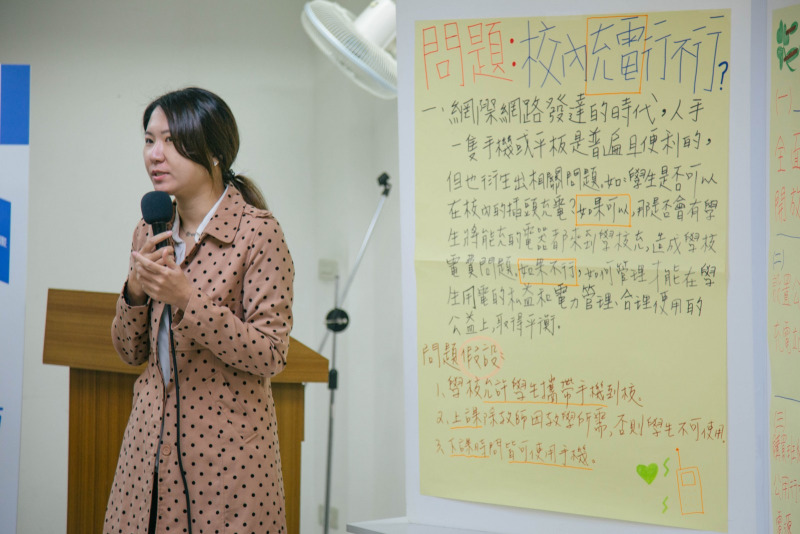 問題:校內充電行不行?
一、網際網路發達的時代,人手
一隻手機或平板是普遍且便利的,
但也衍生出相關問題,如:學生是否可以
在校內的插頭充電?如果可以,那是否會有學
生將能充的電器都來到學校充,造成學校
電費問題,如果不行,如何管理才能在學
生用電的私益和電力管理、合理使用的
公益上,取得平衡。
問題假設:
1、學校允許學生攜帶手機到校.
2、上課除教師因教學所需,否則學生不可使用.
3、下課時間皆可使用手機。
(一)
全面
開放
(二)
設置
充電
(三)